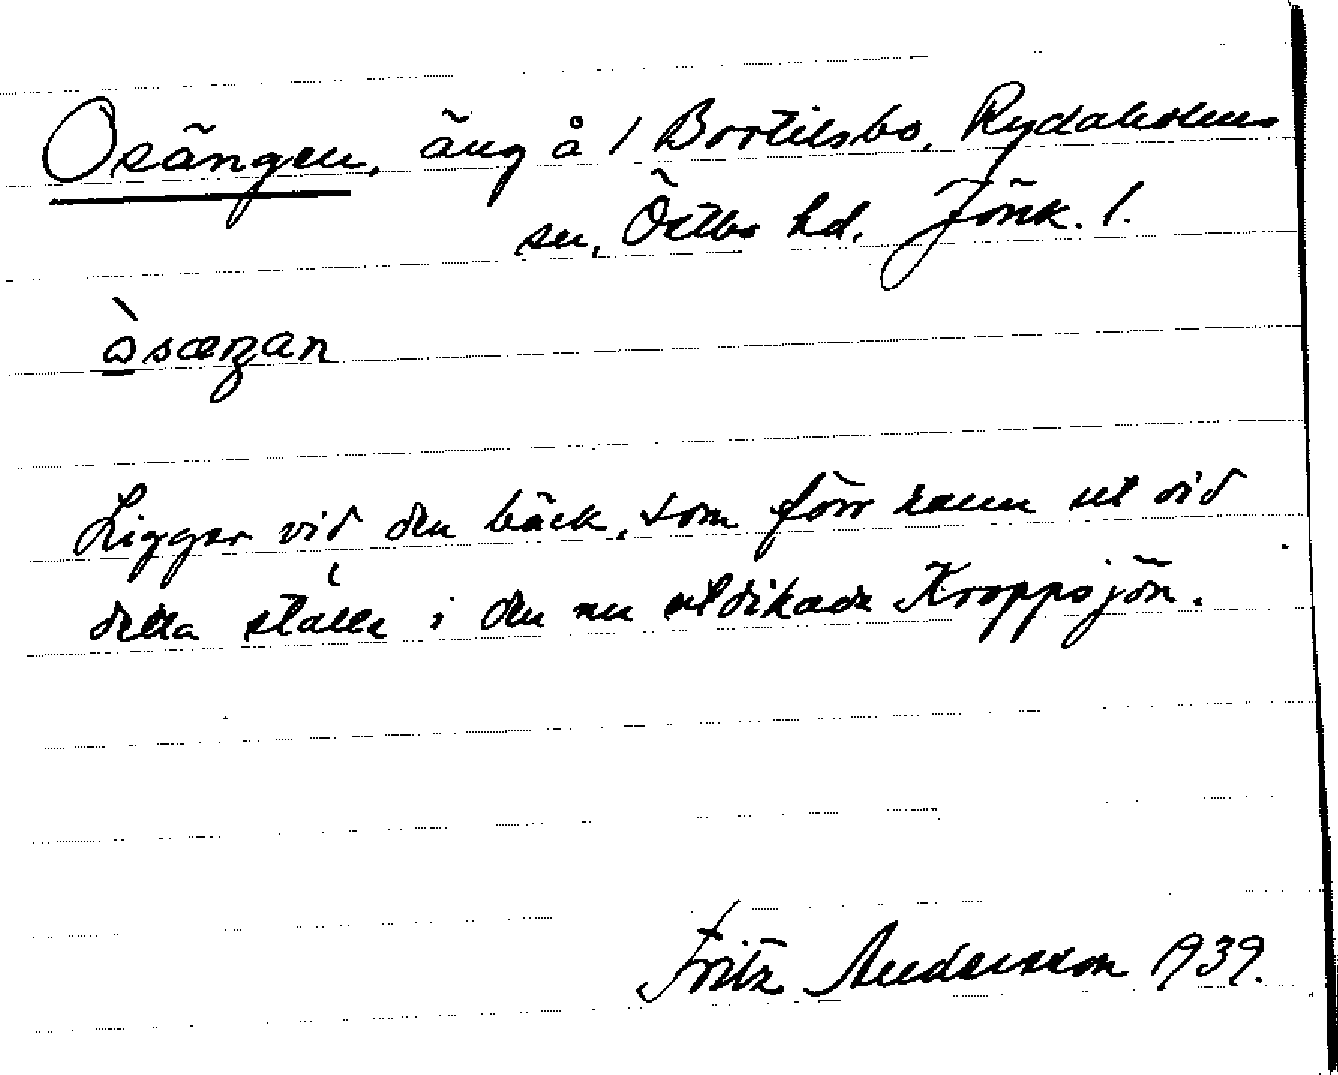 Osängen, äng å 1 Bortilsbo, Rydaholms
sn, Östbo hd. Jönk. l.
òsæŋan
Ligger vid den bäck, som förr rann ut vid
detta ställe i den nu utdikade Kroppsjön.
Fritz Andersson 1939.